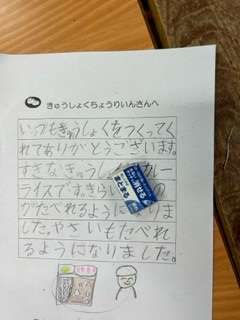 きゅうしょくちょうりいんさんへ
いつもきゅうしょくをつくってく
れてありがとうございます。
すきなきゅうしょ カレー
ライスです。きらい の
がたべれるように りま
した。やさいもたべれ
るようになりました。
まとまる
消せる